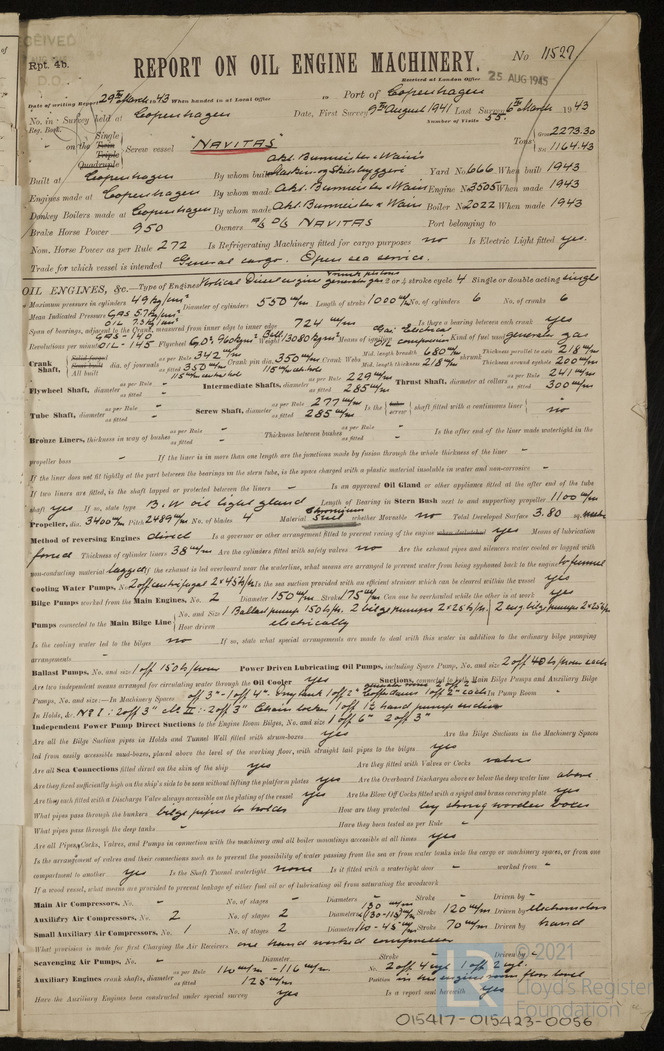 RECEIVED
Rpt. 4b.
REPORT ON OIL ENGINE MACHINERY.
No 11527
Received at London Office 25 AUG 1945
Date of writing Report 29th March 1943 When handed in at Local Office to Port of Copenhagen
No. in Reg. Book. Survey held at Copenhagen Date, First Survey 9th August 1941 Last Survey 6th March 1943
Number of Visits 55.
on the Single Twin Triple Quadruple Screw vessel "NAVITAS" Tons Gross 2273.30 Net 1164.43
Built at Copenhagen By whom built Akt. Burmeister & Wain's Maskin- og Skibsbyggeri Yard No. 666 When built 1943
Engines made at Copenhagen By whom made Akt. Burmeister & Wain Engine No. 3505 When made 1943
Donkey Boilers made at Copenhagen By whom made Akt. Burmeister & Wain Boiler No. 2022 When made 1943
Brake Horse Power 950 Owners A/S D/S NAVITAS Port belonging to
Nom. Horse Power as per Rule 272 Is Refrigerating Machinery fitted for cargo purposes no Is Electric Light fitted yes.
Trade for which vessel is intended General cargo. Open sea service.
OIL ENGINES, &c.—Type of Engines Vertical Diesel engine Trunk pistons generator gas 2 or 4 stroke cycle 4 Single or double acting single
Maximum pressure in cylinders 49 kg/cm² Diameter of cylinders 550 m/m Length of stroke 1000 m/m No. of cylinders 6 No. of cranks 6
Mean Indicated Pressure GAS 5.7 kg/cm² OIL 7.3 kg/cm²
Span of bearings, adjacent to the Crank, measured from inner edge to inner edge 724 m/m Is there a bearing between each crank yes
Revolutions per minute GAS - 140 OIL - 145 Flywheel Weight Means of ignition Gas: Electrical Oil: compression Kind of fuel used generator gas
Crank Shaft, Solid forged Semi built All built dia. of journals as per Rule 342 m/m as fitted 350 m/m 115 m/m cent. hole Crank pin dia. 350 m/m 115 m/m cent. hole Crank Webs Mid. length breadth 680 m/m Mid. length thickness 218 m/m shrunk Thickness parallel to axis 218 m/m Thickness around eyehole 200 m/m
Flywheel Shaft, diameter as per Rule as fitted - Intermediate Shafts, diameter as per Rule 229 m/m as fitted 285 m/m Thrust Shaft, diameter at collars as per Rule 241 m/m as fitted 300 m/m
Tube Shaft, diameter as per Rule as fitted - Screw Shaft, diameter as per Rule 277 m/m as fitted 285 m/m Is the tube screw shaft fitted with a continuous liner no
Bronze Liners, thickness in way of bushes as per Rule as fitted - Thickness between bushes as per Rule as fitted - Is the after end of the liner made watertight in the
propeller boss - If the liner is in more than one length are the junctions made by fusion through the whole thickness of the liner -
If the liner does not fit tightly at the part between the bearings in the stern tube, is the space charged with a plastic material insoluble in water and non-corrosive -
If two liners are fitted, is the shaft lapped or protected between the liners - Is an approved Oil Gland or other appliance fitted at the after end of the tube
shaft yes If so, state type B.W oil tight gland Length of Bearing in Stern Bush next to and supporting propeller 1100 m/m
Propeller, dia. 3400 m/m Pitch 2489 m/m No. of blades 4 Material Chromium Steel whether Moveable no Total Developed Surface 3.80 sq.
Method of reversing Engines direct Is a governor or other arrangement fitted to prevent racing of the engine when declutched yes Means of lubrication
forced Thickness of cylinder liners 38 m/m Are the cylinders fitted with safety valves no Are the exhaust pipes and silencers water cooled or lagged with
non-conducting material lagged If the exhaust is led overboard near the waterline, what means are arranged to prevent water from being syphoned back to the engine to funnel
Cooling Water Pumps, No. 2 off centrifugal 2 x 45 t/h. Is the sea suction provided with an efficient strainer which can be cleared within the vessel yes
Bilge Pumps worked from the Main Engines, No. 2 Diameter 150 m/m Stroke 175 m/m Can one be overhauled while the other is at work yes
Pumps connected to the Main Bilge Line No. and Size 1 Ballast pump 150 t/h. 2 bilge pumps 2 x 25 t/h. 2 eng. bilge pumps 2 x 25 t/h
How driven electrically
Is the cooling water led to the bilges no If so, state what special arrangements are made to deal with this water in addition to the ordinary bilge pumping
arrangements -
Ballast Pumps, No. and size 1 off 150 t/hour Power Driven Lubricating Oil Pumps, including Spare Pump, No. and size 2 off 40 t/hour each
Are two independent means arranged for circulating water through the Oil Cooler yes Suctions, connected to both Main Bilge Pumps and Auxiliary Bilge
Pumps, No. and size:—In Machinery Spaces off 3" - 1 off 4". 1 off 2" Cofferdams 1 off 2" each In Pump Room -
In Holds, &c. No I: 2 off 3" No II: 2 off 3" Chain locker 1 off 1½ hand pump
Independent Power Pump Direct Suctions to the Engine Room Bilges, No. and size 1 off 6" 2 off 3"
Are all the Bilge Suction pipes in Holds and Tunnel Well fitted with strum-boxes yes Are the Bilge Suctions in the Machinery Spaces
led from easily accessible mud-boxes, placed above the level of the working floor, with straight tail pipes to the bilges yes
Are all Sea Connections fitted direct on the skin of the ship yes Are they fitted with Valves or Cocks valve
Are they fixed sufficiently high on the ship's side to be seen without lifting the platform plates yes Are the Overboard Discharges above or below the deep water line above
Are they each fitted with a Discharge Valve always accessible on the plating of the vessel yes Are the Blow Off Cocks fitted with a spigot and brass covering plate yes
What pipes pass through the bunkers bilge pipes to holds How are they protected by strong wooden boxes
What pipes pass through the deep tanks - Have they been tested as per Rule -
Are all Pipes, Cocks, Valves, and Pumps in connection with the machinery and all boiler mountings accessible at all times yes
Is the arrangement of valves and their connections such as to prevent the possibility of water passing from the sea or from water tanks into the cargo or machinery spaces, or from one
compartment to another yes Is the Shaft Tunnel watertight none Is it fitted with a watertight door - worked from -
If a wood vessel, what means are provided to prevent leakage of either fuel oil or of lubricating oil from saturating the woodwork
Main Air Compressors, No. - No. of stages - Diameters - Stroke - Driven by -
Auxiliary Air Compressors, No. 2 No. of stages 2 Diameters 130 m/m (130-115) m/m Stroke 120 m/m Driven by electromotors
Small Auxiliary Air Compressors, No. 1 No. of stages 2 Diameters 110-45 m/m Stroke 70 m/m Driven by hand
What provision is made for first Charging the Air Receivers one hand worked compressor
Scavenging Air Pumps, No. - Diameter - Stroke - Driven by -
Auxiliary Engines crank shafts, diameter as per Rule 110 m/m - 116 m/m as fitted 125 m/m No. 2 off 4 cyl. 1 off 2 cyl. Position in the engine room floor level
Have the Auxiliary Engines been constructed under special survey yes Is a report sent herewith yes
LR
© 2021
Lloyd's Register
Foundation
015417-015423-0056